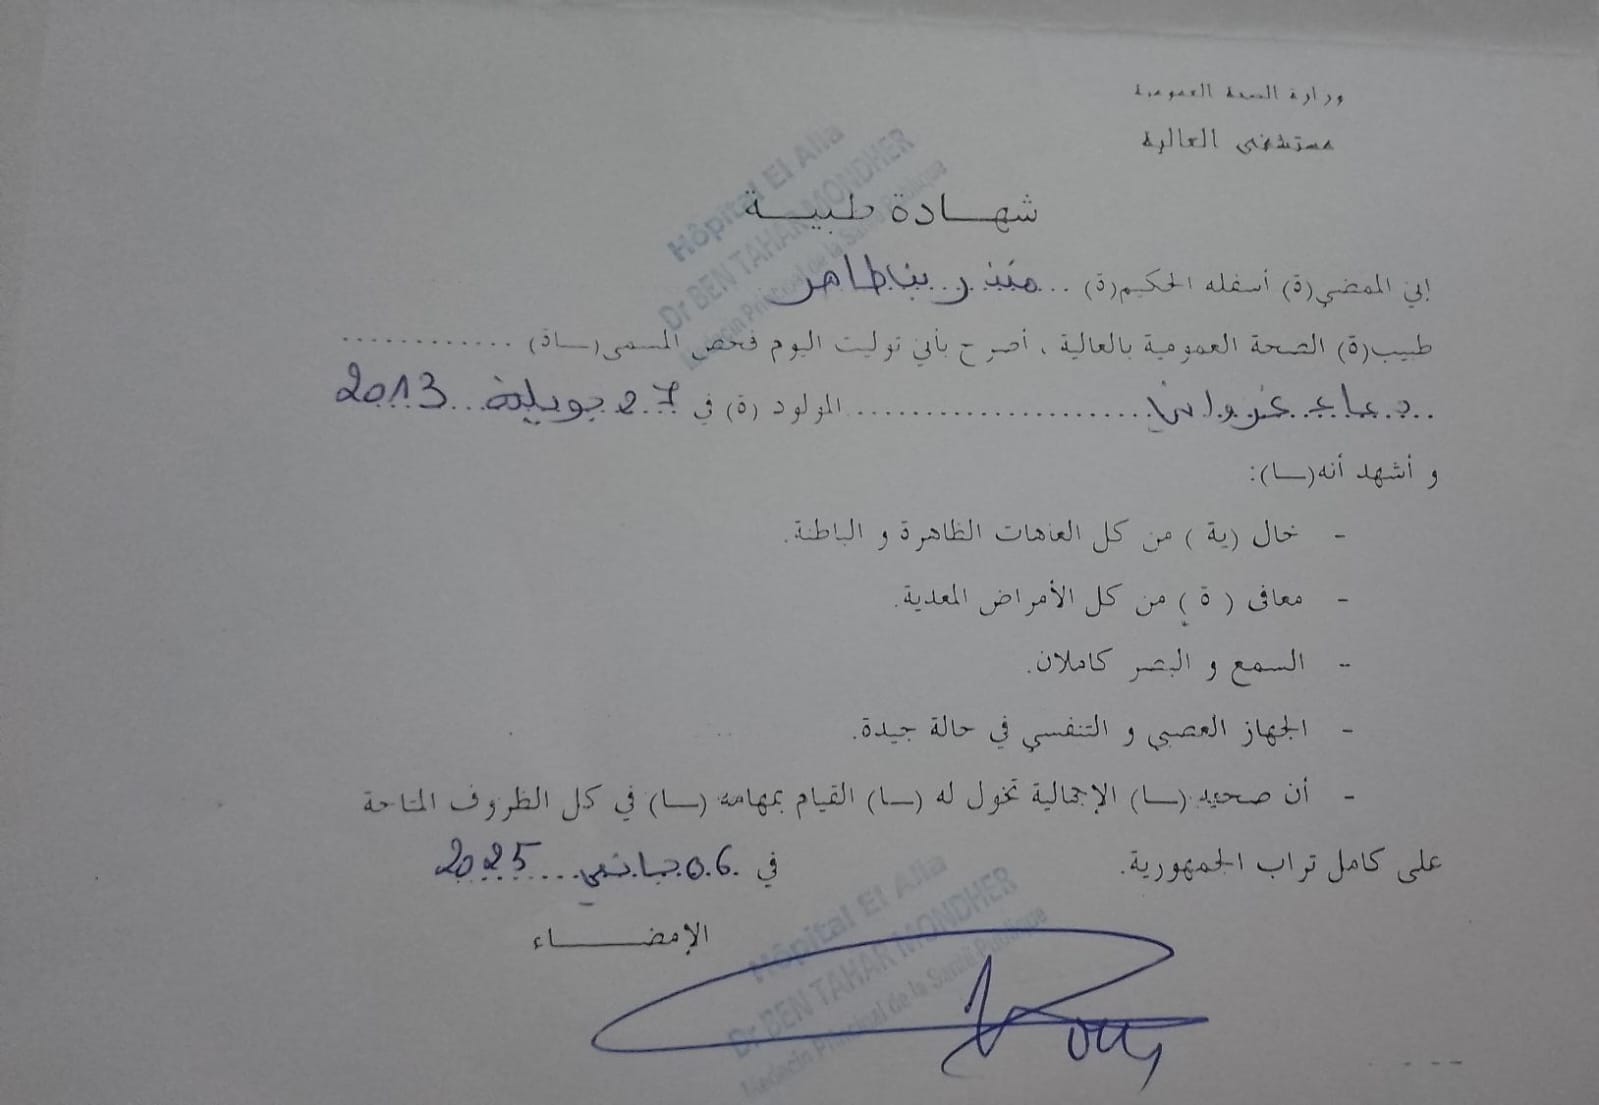 وزارة الصحة العمومية
مستشفى العالية
شهـــادة طبيـــة
Hôpital El Alia
Dr BEN TAHAR MONDHER
Médecin Principal de la Santé Publique
إني الممضي(ة) أسفله الحكيم(ة) ... منذر بن طاهر
طبيب(ة) الصحة العمومية بالعالية ، أصرح بأني توليت اليوم فحص المسمى(ـاة) ............
دعاء غزواني ...................... المولود (ة) في 27 جويلية 2013
و أشهد أنه(ـا):
- خال (ية ) من كل العاهات الظاهرة و الباطنة.
- معافى ( ة ) من كل الأمراض المعدية.
- السمع و البصر كاملان.
- الجهاز العصبي و التنفسي في حالة جيدة.
- أن صحته (ـا) الإجمالية تخول له (ـا) القيام بمهامه (ـا) في كل الظروف المتاحة
على كامل تراب الجمهورية. في 06 جانفي 2025
الإمضـــــاء
Hôpital El Alia
Dr BEN TAHAR MONDHER
Médecin Principal de la Santé Publique